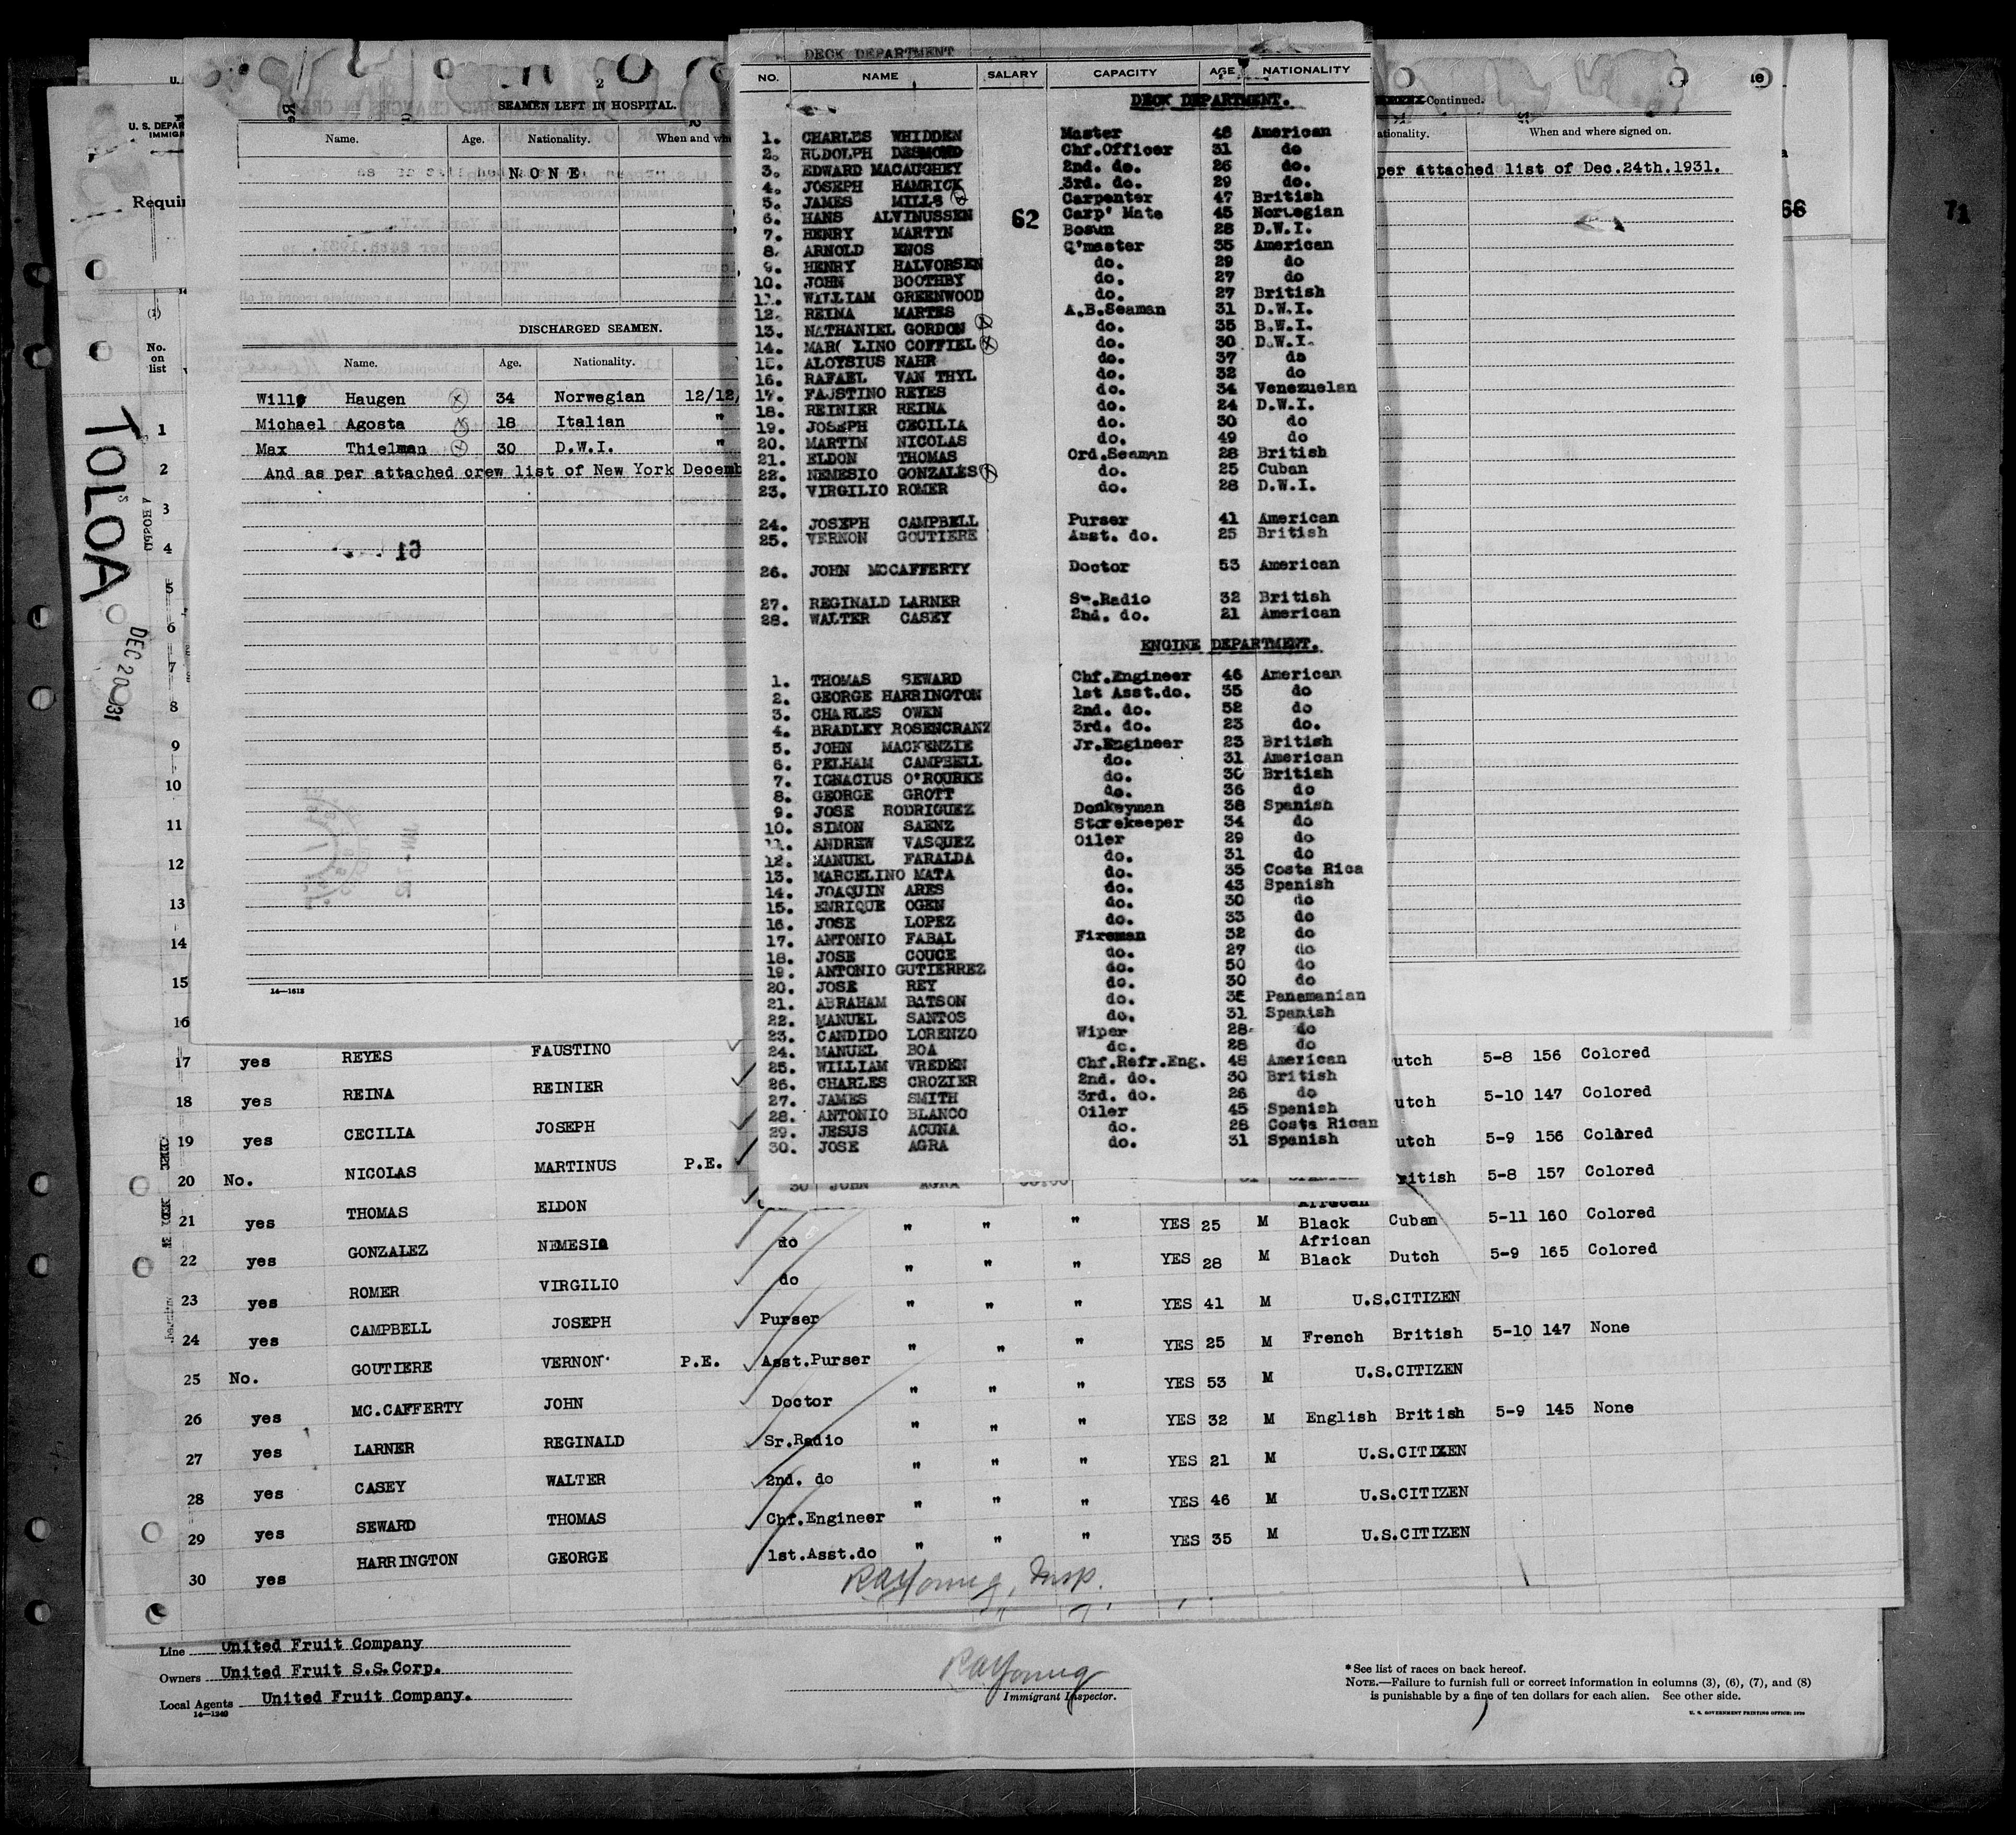 U. S. DEPAR
IMMIG
Requir
(1)
No.
on
list
TOLOA
DEC 20 1931
2
SEAMEN LEFT IN HOSPITAL.
Name. Age. Nationality. When and wh
NONE
DISCHARGED SEAMEN.
Name. Age. Nationality.
Haugen 34 Norwegian 12/12/
Michael Agosta 18 Italian "
Max Thielman 30 D.W.I. "
And as per attached crew list of New York Decemb
61
14—1613
DECK DEPARTMENT
NO. NAME SALARY CAPACITY AGE NATIONALITY
DECK DEPARTMENT.
1. CHARLES WHIDDEN Master 48 American
2. RUDOLPH DESMOND Chf.Officer 31 do
3. EDWARD MACAUGHEY 2nd. do. 26 do.
4. JOSEPH HAMRICK 3rd. do. 29 do.
5. JAMES MILLS Carpenter 47 British
6. HANS ALVINUSSEN 62 Carp' Mate 45 Norwegian
7. HENRY MARTYN Bosun 28 D.W.I.
8. ARNOLD ENOS Q'master 35 American
9. HENRY HALVORSEN do. 29 do
10. JOHN BOOTHBY do. 27 do
11. WILLIAM GREENWOOD do. 27 British
12. REINA MARTES A.B.Seaman 31 D.W.I.
13. NATHANIEL GORDON do. 35 B.W.I.
14. MAR( LINO COFFIEL do. 30 D.W.I.
15. ALOYSIUS NAHR do. 37 do
16. RAFAEL VAN THYL do. 32 do
17. FAUSTINO REYES do. 34 Venezuelan
18. REINIER REINA do. 24 D.W.I.
19. JOSEPH CECILIA do. 30 do
20. MARTIN NICOLAS do. 49 do
21. ELDON THOMAS Ord.Seaman 28 British
22. NEMESIO GONZALES do. 25 Cuban
23. VIRGILIO ROMER do. 28 D.W.I.
24. JOSEPH CAMPBELL Purser 41 American
25. VERNON GOUTIERE Asst. do. 25 British
26. JOHN MCCAFFERTY Doctor 53 American
27. REGINALD LARNER Sr.Radio 32 British
28. WALTER CASEY 2nd. do. 21 American
ENGINE DEPARTMENT.
1. THOMAS SEWARD Chf.Engineer 46 American
2. GEORGE HARRINGTON 1st Asst.do. 35 do
3. CHARLES OWEN 2nd. do. 52 do
4. BRADLEY ROSENCRANZ 3rd. do. 23 do.
5. JOHN MACKENZIE Jr.Engineer 23 British
6. PELHAM CAMPBELL do. 31 American
7. IGNACIUS O'ROURKE do. 30 British
8. GEORGE GROTT do. 36 do
9. JOSE RODRIGUEZ Donkeyman 38 Spanish
10. SIMON SAENZ Storekeeper 34 do
11. ANDREW VASQUEZ Oiler 29 do
12. MANUEL FARALDA do. 31 do
13. MARCELINO MATA do. 35 Costa Rica
14. JOAQUIN ARES do. 43 Spanish
15. ENRIQUE OGEN do. 30 do
16. JOSE LOPEZ do. 33 do
17. ANTONIO FABAL Fireman 32 do
18. JOSE COUCE do. 27 do
19. ANTONIO GUTIERREZ do. 50 do
20. JOSE REY do. 30 do
21. ABRAHAM BATSON do. Panamanian
22. MANUEL SANTOS do. 31 Spanish
23. CANDIDO LORENZO Wiper 28 do
24. MANUEL BOA do. 28 do
25. WILLIAM VREDEN Chf.Refr.Eng. 48 American
26. CHARLES CROZIER 2nd. do. 30 British
27. JAMES SMITH 3rd. do. 26 do
28. ANTONIO BLANCO Oiler 45 Spanish
29. JESUS ACUNA do. 28 Costa Rican
30. JOSE AGRA do. 31 Spanish
30 JOHN AGRA
Continued.
ationality. When and where signed on.
per attached list of Dec.24th.1931.
66
71
1
2
3
4
5
6
7
8
9
10
11
12
13
14
15
16
17 yes REYES FAUSTINO utch 5-8 156 Colored
18 yes REINA REINIER utch 5-10 147 Colored
19 yes CECILIA JOSEPH utch 5-9 156 Colored
20 No. NICOLAS MARTINUS P.E. ritish 5-8 157 Colored
21 yes THOMAS ELDON " " " YES 25 M African Black Cuban 5-11 160 Colored
22 yes GONZALEZ NEMESIO do " " " YES 28 M African Black Dutch 5-9 165 Colored
23 yes ROMER VIRGILIO do " " " YES 41 M U.S.CITIZEN
24 yes CAMPBELL JOSEPH Purser " " " YES 25 M French British 5-10 147 None
25 No. GOUTIERE VERNON P.E. Asst.Purser " " " YES 53 M U.S.CITIZEN
26 yes MC.CAFFERTY JOHN Doctor " " " YES 32 M English British 5-9 145 None
27 yes LARNER REGINALD Sr.Radio " " " YES 21 M U.S.CITIZEN
28 yes CASEY WALTER 2nd. do " " " YES 46 M U.S.CITIZEN
29 yes SEWARD THOMAS Chf.Engineer " " " YES 35 M U.S.CITIZEN
30 yes HARRINGTON GEORGE 1st.Asst.do
RAYoung, Insp.
Line United Fruit Company
Owners United Fruit S.S.Corp.
Local Agents United Fruit Company.
14—1240
RAYoung
Immigrant Inspector.
*See list of races on back hereof.
NOTE.—Failure to furnish full or correct information in columns (3), (6), (7), and (8)
is punishable by a fine of ten dollars for each alien. See other side.
U. S. GOVERNMENT PRINTING OFFICE: 1930